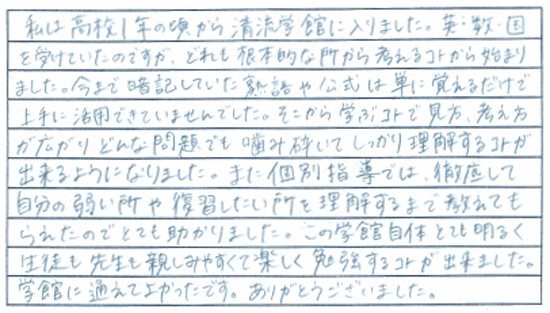 私は高校1年の頃から清流学館に入りました。英・数・国
を受けていたのですが、どれも根本的な所から考えるコトから始まり
ました。今まで暗記していた熟語や公式は単に覚えるだけで
上手に活用できていませんでした。そこから学ぶコトで見方、考え方
が広がりどんな問題でも噛み砕いてしっかり理解するコトが
出来るようになりました。また個別指導では、徹底して
自分の弱い所や復習したい所を理解するまで教えても
らえたのでとても助かりました。この学館自体とても明るく
生徒も先生も親しみやすくて楽しく勉強するコトが出来ました。
学館に通えてよかったです。ありがとうございました。